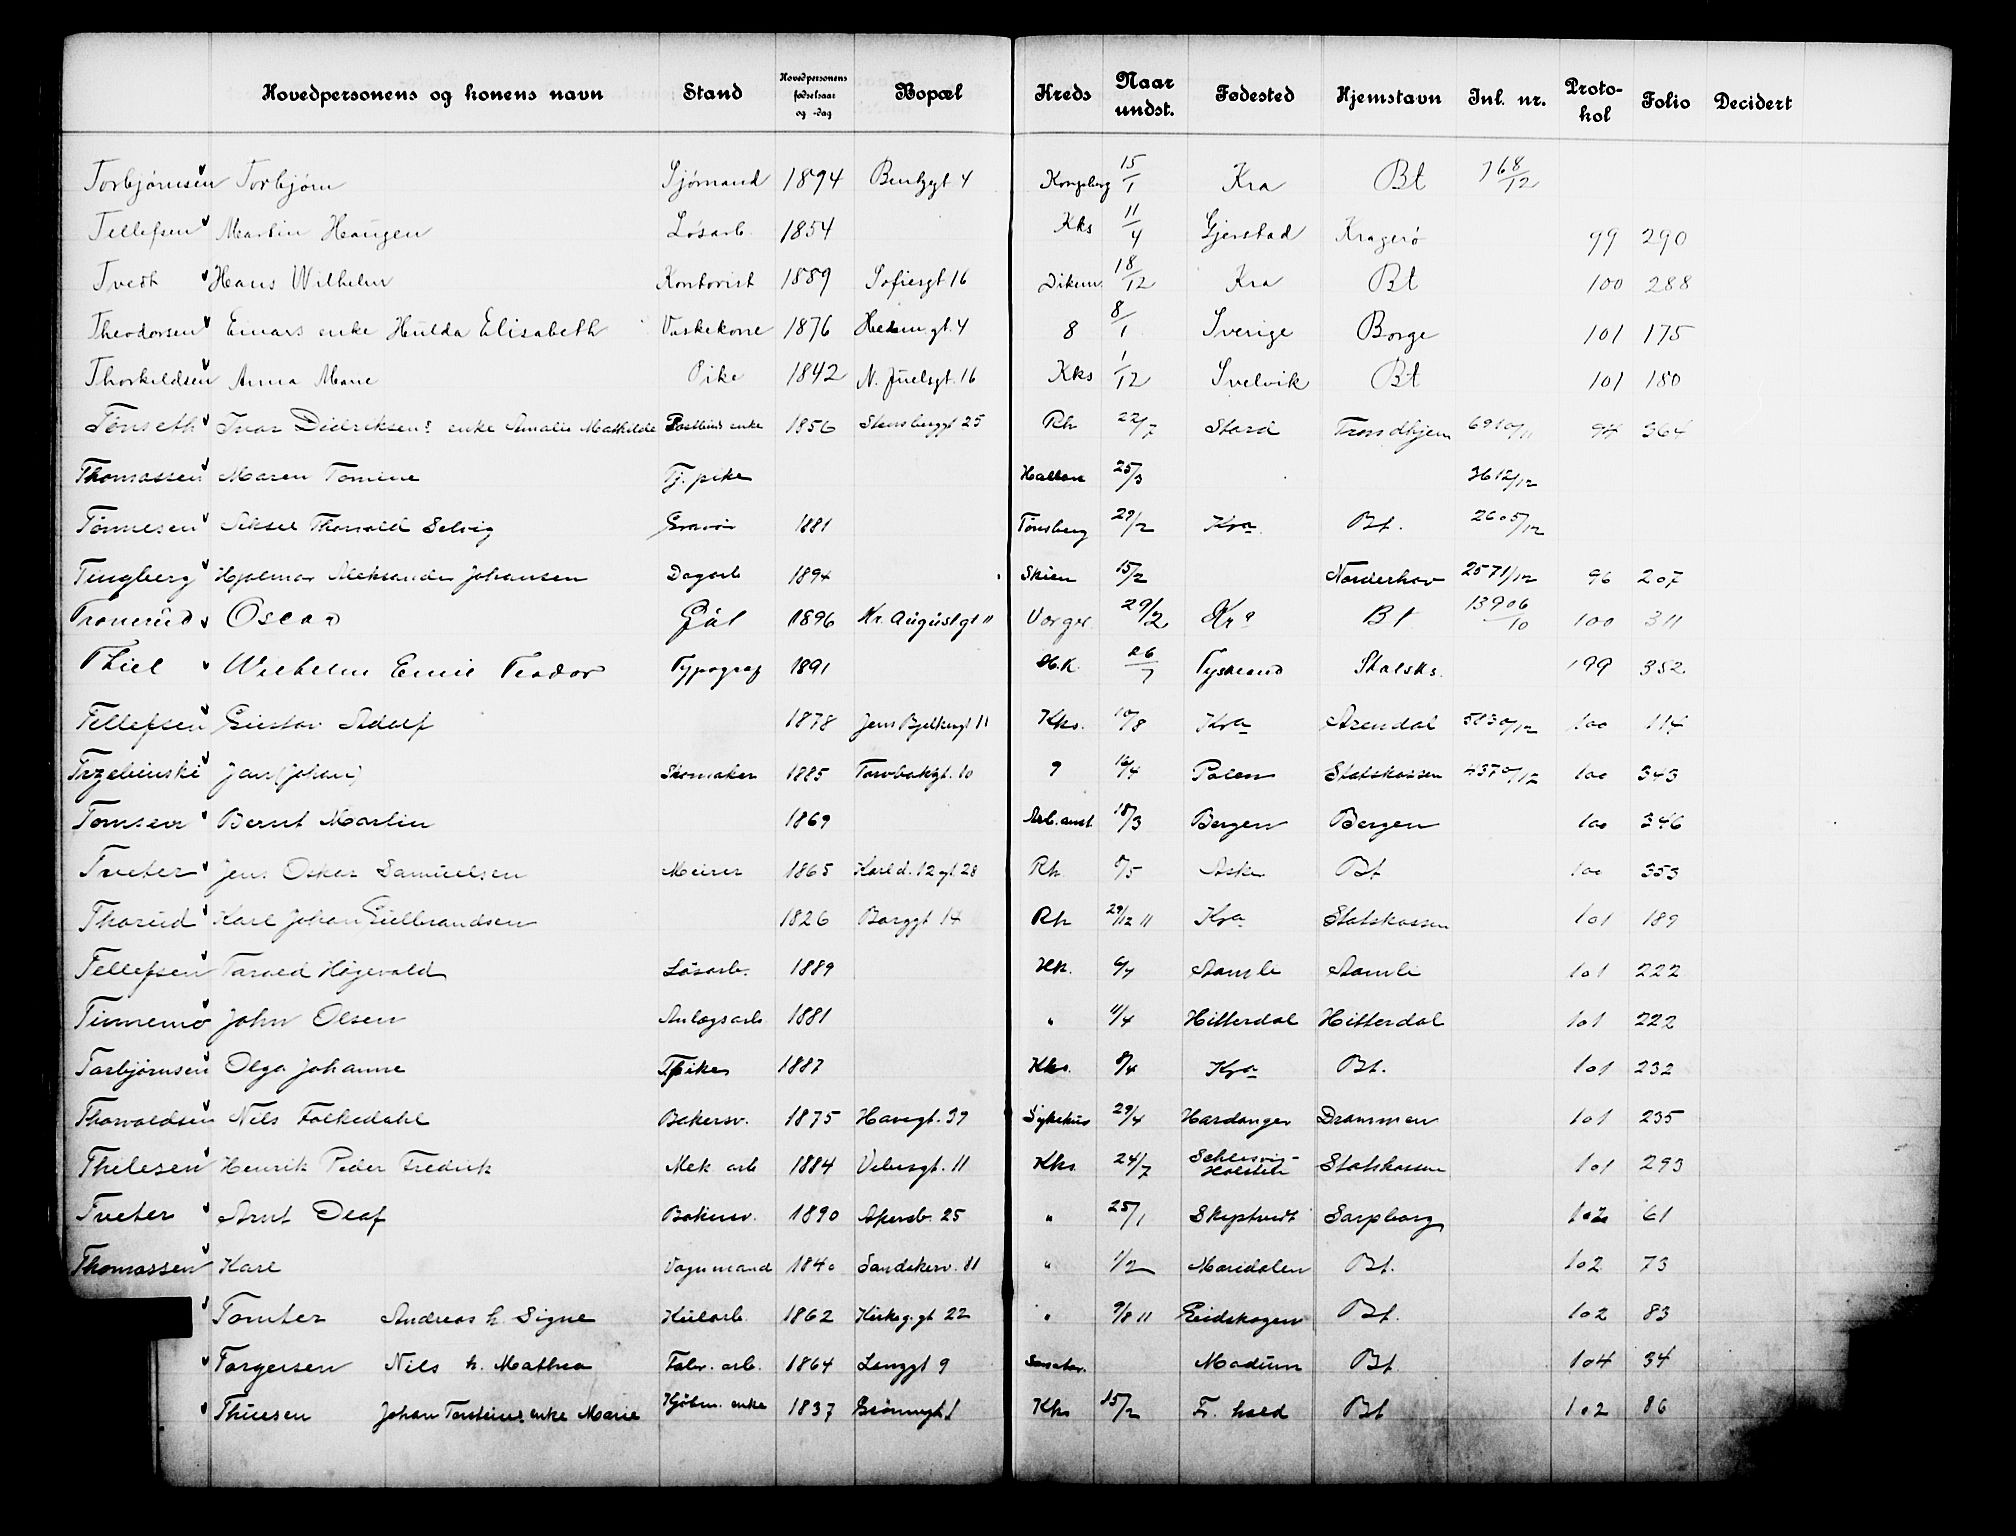 Hovedpersonens og konens navn Stand Hovedpersonens fødselsaar og -dag Bopæl Kreds Naar undst. Fødested Hjemstavn Inl. nr. Proto-kol Folio Decidert
Torbjørnsen Torbjørn Sjømand 1894 Bentzgt 4 Kongsberg 15/1 Kra Bt 768/12
Tellefsen Martin Haugen Løsarb. 1854 Kks 11/4 Gjerstad Kragerø 99 290
Tvedt Hans Wilhelm Kontorist 1889 Sofiesgt 16 Dikem. 18/12 Kra Bt 100 288
Theodorsen Einars enke Hulda Elisabeth Vaskekone 1876 Hedem.gt. 4 8 8/1 Sverige Borge 101 175
Thorkildsen Anna Marie Pike 1842 N. Juelsgt. 16 Kks 1/12 Svelvik Bt 101 180
Tønseth Ivar Didriksens enke Amalie Mathilde enke 1856 Stensberggt 25 Rh 22/7 Stord Trondhjem 6910/11 94 364
Thomassen Maren Tomine Tj. pike 25/3 3612/12
Tønnesen Aksel Thorvald Selvig Gravør 1881 Tønsberg 29/2 Kra Bt. 2605/12
Tingberg Hjalmar Aleksander Johansen Dagarb 1894 Skien 15/2 Norderhov 2571/12 96 207
Tronerud Oscar Gul 1896 Kr. Augustgt 11 Vorger 29/2 Kra Bt 13906/10 100 311
Thiel Wilhelm Emil Teodor Typograf 1891 H.K. 26/7 Tyskland Statsks. 199 352
Tellefsen Gustav Adolf 1878 Jens Bjelkesgt 11 Kks. 10/8 Kra Arendal 5830/12 100 114
Trzebinski Jan (Johan) Skomaker 1885 Torvbakgt. 10 9 12/4 Polen Statskassen 4370/12 100 343
Tomsen Bernt Martin 1869 Arb. anst. 18/3 Bergen Bergen 100 346
Tveter Jens Oskar Samuelsen Meier 1865 Karl d. 12 gt. 28 Rh /5 Asker Bt 100 353
Thorud Karl Johan Gulbrandsen 1826 Borggt 14 Rh 29/12 11 Kra Statskassen 101 189
Tellefsen Tarald Høgevold Løsarb. 1889 Hk. 6/4 Aamli Aamli 101 222
Tinnemo John Olsen Anlægsarb 1881 " 11/4 Hitterdal Hitterdal 101 222
Torbjørnsen Olga Johanne Tj. pike 1887 Kks. 8/4 Kra Bt. 101 232
Thorvaldsen Nils Folkedahl Bakersv. 1875 Havegt. 37 Sykehus 29/4 Hardanger Drammen 101 235
Thelesen Henrik Peder Fredrik Mek arb 1884 Vibesgt. 11 Kks 24/7 Schlesvig-Holstein Statskassen 101 293
Tveter Arnt Olaf Bakersv. 1890 Akersb. 25 " 25/1 Skiptvedt Sarpborg 102 61
Thomassen Karl Vognmand 1840 Sandakerv. 81 " 1/2 Maridalen Bt. 102 73
Tomter Andreas h. Signe Kularb. 1862 Kirkeg.gt 22 " 9/8 11 Eidskogen Bt. 102 83
Torgersen Nils h. Mathea Fabr. arb. 1864 Langgt 9 Sanator. Modum Bt. 104 34
Thuesen Johan Torsteins enke Marie Kjøbm. enke 1837 Grønnegt 1 Kks 15/2 Fr. hald Bt 102 86